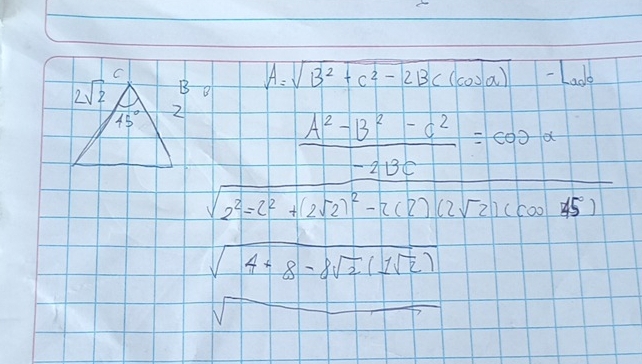 C
2√2
45°
B
2
A = √B² + c² - 2Bc (cos a) - Lado
A² - B² - c² / -2BC = cos α
√2² = 2² + (2√2)² - 2(2)(2√2)(cos 45°)
√4 + 8 - 8√2 (1√2)
√